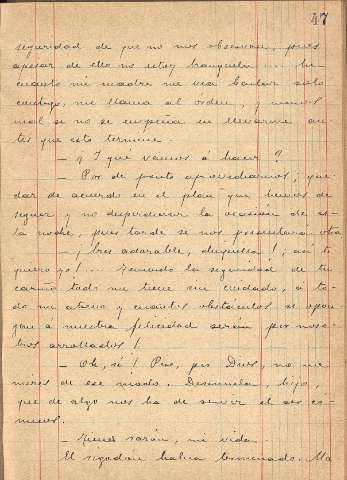 47
seguridad de que no nos observan, pues
apesar de ello no estoy tranquila ... En
cuanto mi madre me vea bailar solo
contigo, me llama al orden, y menos
mal se no se empeña en llevarme an-
tes que esto termine.
— ¿ Y que vamos á hacer ?
— Por de pronto aprovecharnos; que-
dar de acuerdo en el plan que hemos de
seguir y no desperdiciar la ocasión de es-
ta noche, pues tarde se nos presentará otra
— ¡ Eres adorable, chiquilla !; ¡ así te
quiero yo !.... Teniendo la seguridad de tu
cariño todo me tiene sin cuidado, á to-
do me atrevo y cuantos obstáculos se opon-
gan á nuestra felicidad serán por noso-
tros arrollados !
— Oh, sí ! Pero, por Dios, no me
mires de ese modo. Desimula, hijo,
que de algo nos ha de servir el ser es-
— Tienes razón, mi vida.
El rigodón había terminado. Ma-